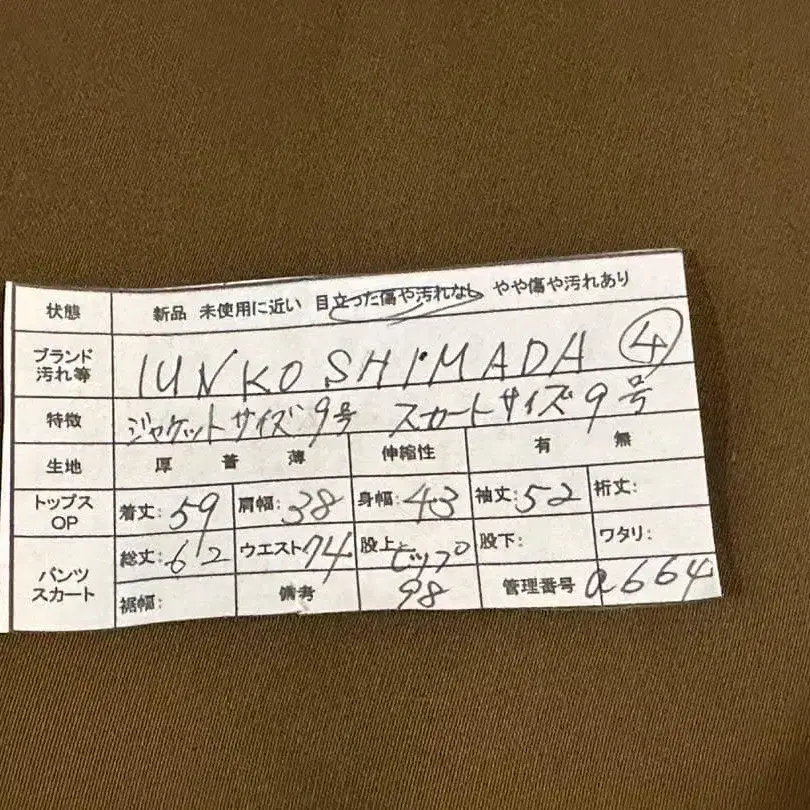 状態 新品 未使用に近い 目立った傷や汚れなし やや傷や汚れあり
ブランド 汚れ等 JUNKO SHIMADA ④
特徴 ジャケットサイズ9号 スカートサイズ9号
生地 厚 普 薄 伸縮性 有 無
トップス OP 着丈:59 肩幅:38 身幅:43 袖丈:52 裄丈:
パンツ スカート 総丈:62 ウエスト74 股上: ヒップ 股下: ワタリ:
裾幅: 備考 98 管理番号 a664